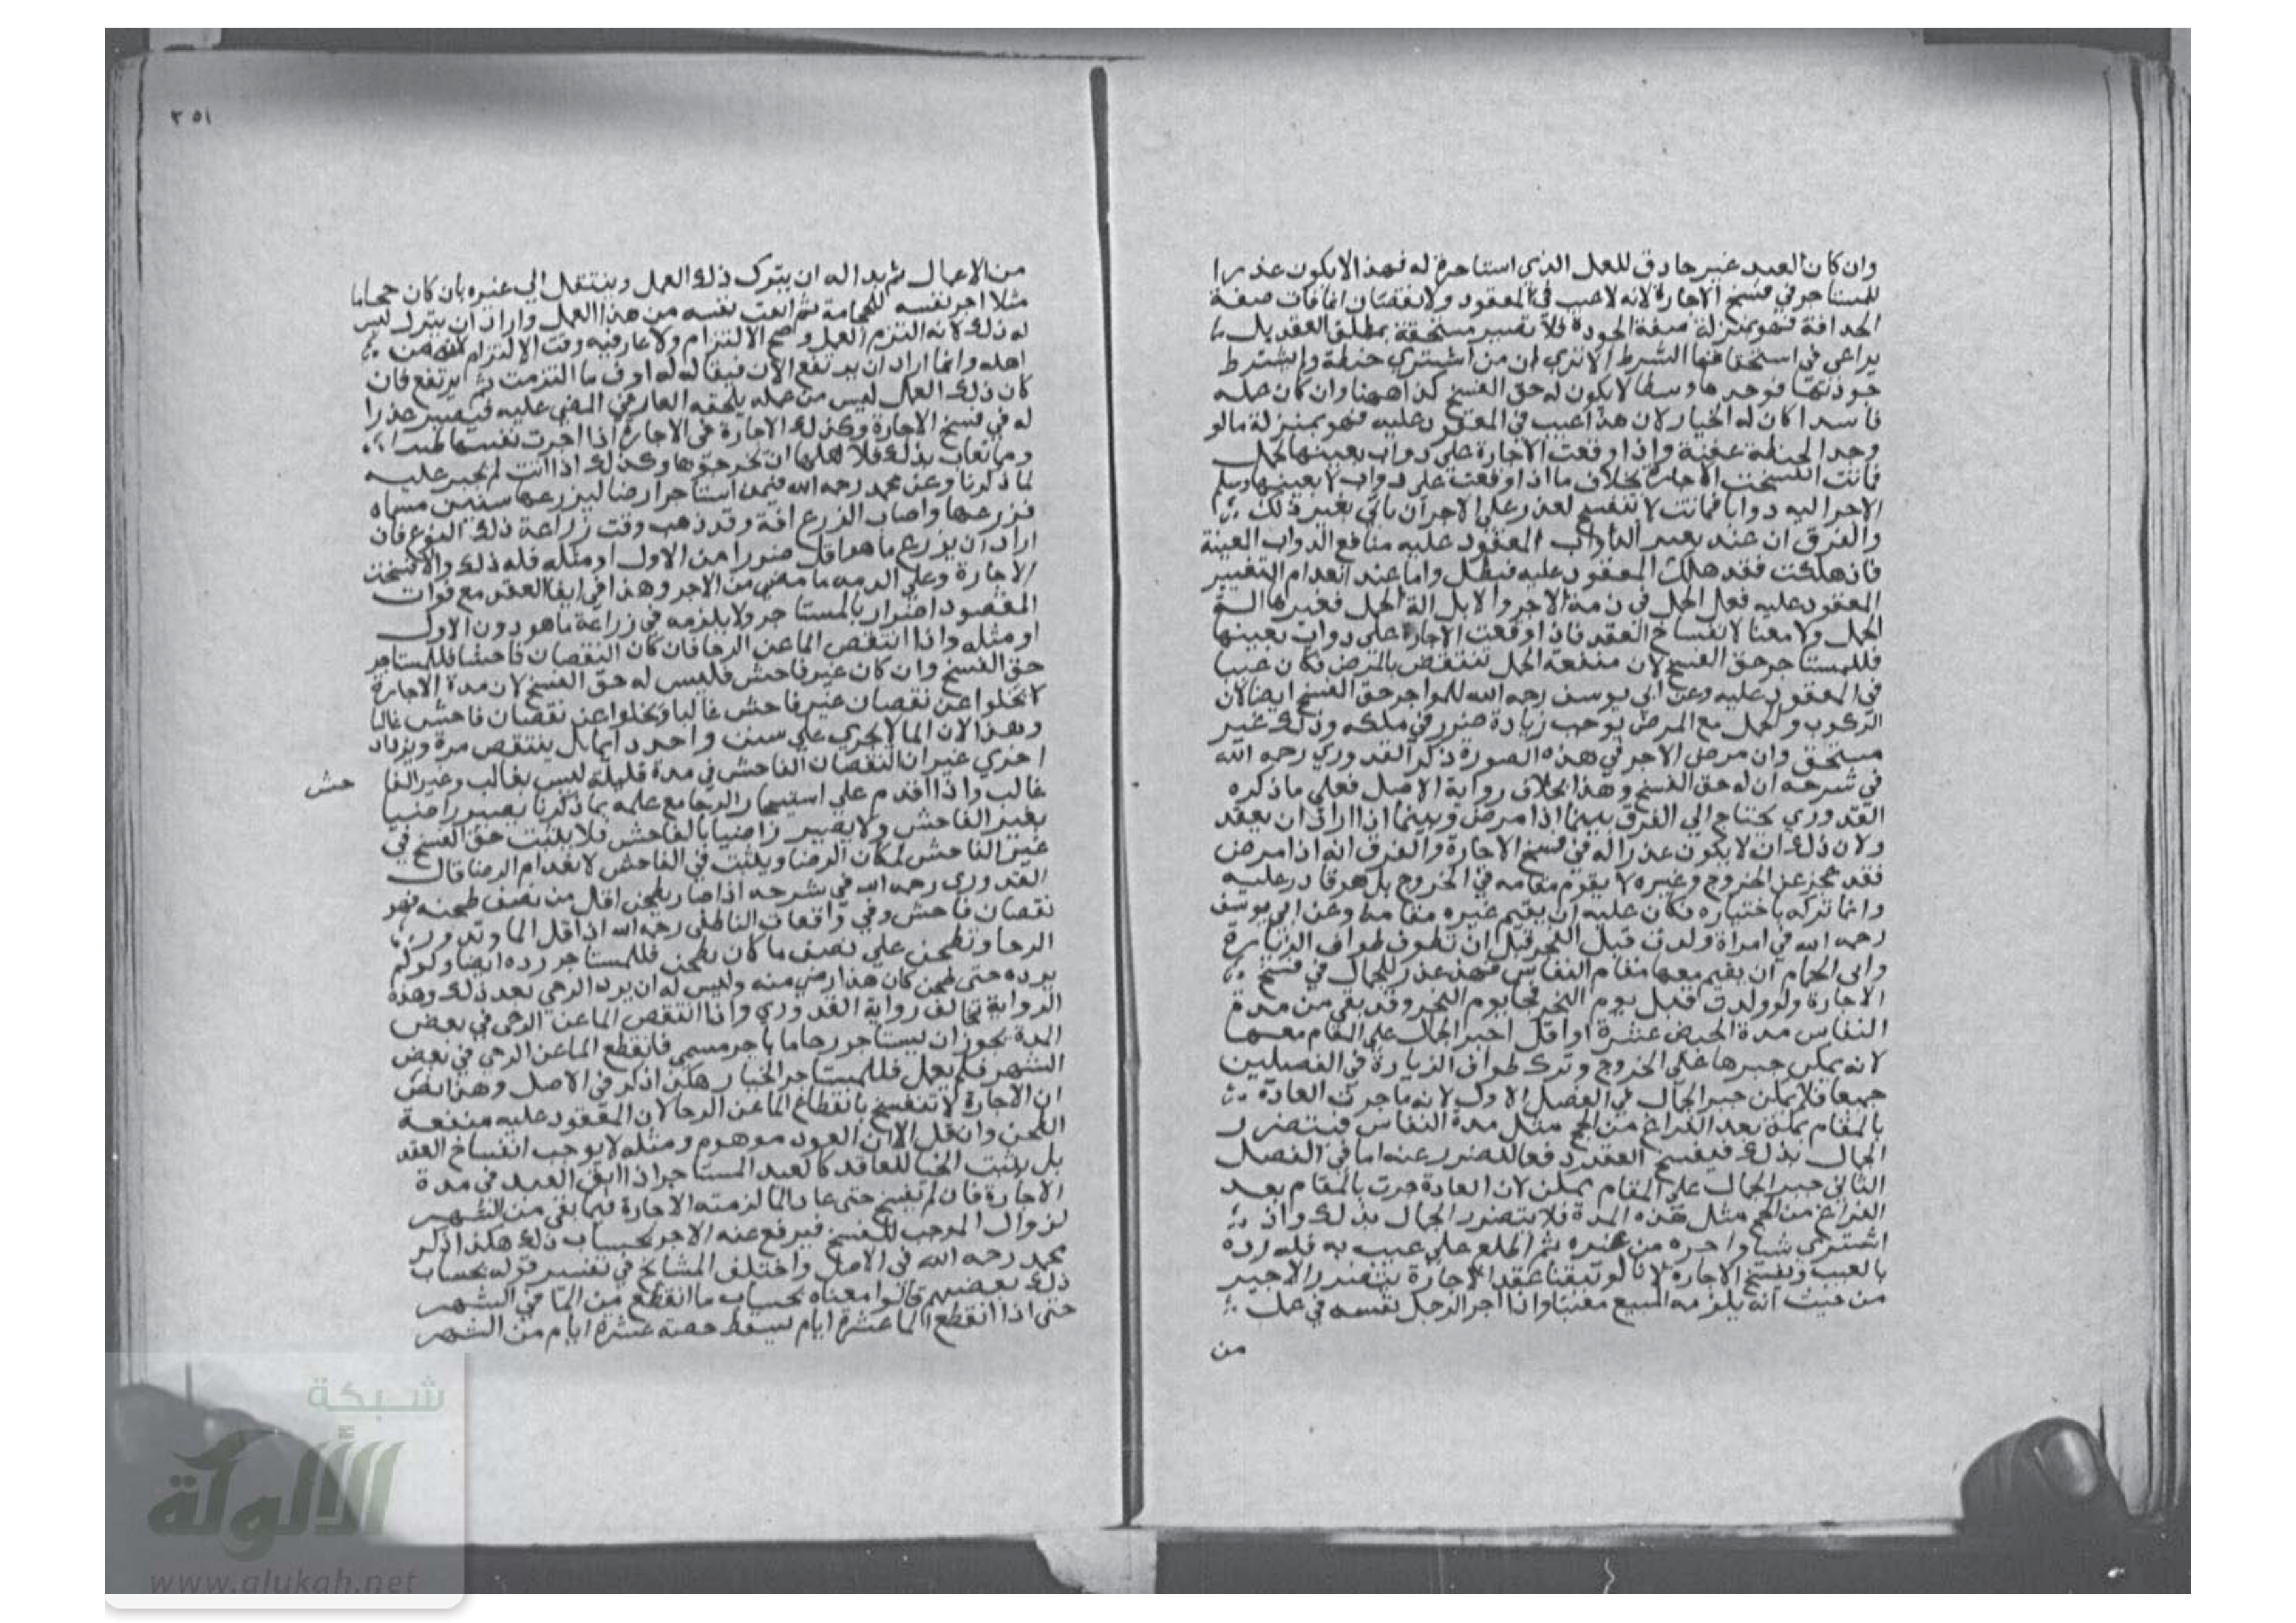 وان كان العبد غير حاذق للعمل الذي استاجره له فهذا لا يكون عذرا
للمستاجر في فسخ الاجارة لانه لا عيب في المعقود ولا نقصان انما فات صفة
الحذاقة فهو بمنزلة صفة الجودة فلا تصير مستحقة بمطلق العقد بل
يراعى في استحقاقها الشرط الا ترى ان من اشترى حنطة ولم يشترط
جودتها فوجدها وسطا لا يكون له حق الفسخ كذا ههنا وان كان عمله
فاسدا كان له الخيار لان هذا عيب في المعقود عليه فهو بمنزلة ما لو
وجد الحنطة عفنة واذا وقعت الاجارة على دواب بعينها لحمل
فماتت انفسخت الاجارة بخلاف ما اذا وقعت على دواب لا بعينها وسلم
الاجر اليه دوابا فماتت لا تنفسخ لعذر وعلى الاجر ان ياتي بغير ذلك
والفرق ان عند تعيين الدواب المعقود عليه منافع الدواب المعينة
فاذا هلكت فقد هلك المعقود عليه فبطل واما عند انعدام التعيين
المعقود عليه فعل الحمل في ذمة الاجر والابل الة الحمل
الحمل ولا معنا لانفساخ العقد فاذا وقعت الاجارة على دواب بعينها
فللمستاجر حق الفسخ لان منفعة الحمل تنتقص بالمرض فكان عيبا
في المعقود عليه وعن ابي يوسف رحمه الله للمواجر حق الفسخ ايضا لان
الركوب والحمل مع المرض يوجب زيادة ضرر في ملكه وذلك غير
مستحق وان مرض الاجر في هذه الصورة ذكر القدوري رحمه الله
في شرحه ان له حق الفسخ وهذا بخلاف رواية الاصل فعلى ما ذكره
القدوري يحتاج الي الفرق بينما اذا مرض وبينما اذا اراد ان يقعد
ولان ذلك ان لا يكون عذرا له في فسخ الاجارة والفرق انه اذا مرض
فقد عجز عن الخروج وغيره لا يقوم مقامه في الخروج بل هو قادر عليه
وانما تركه باختياره فكان عليه ان يقيم غيره مقامه وعن ابي يوسف
رحمه الله في امراة ولدت قبل النحر قبل ان تطوف طواف الزيارة
وابى الجمال ان يقيم معها مقام النفاس فهذا عذر للجمال في فسخ
الاجارة ولو ولدت قبل يوم النحر فجا يوم النحر وقد بقي من مدة
النفاس مدة الحيض عشرة او اقل اجبر الجمال على المقام معها
لانه يمكن جبرها على الخروج وترك طواف الزيارة في الفصلين
جميعا فلا يمكن جبر الجمال في الفصل الاول لانه ما جرت العادة
بالمقام بمكة بعد الفراغ من الحج مثل مدة النفاس فيتضرر
الجمال بذلك فيفسخ العقد دفعا للضرر عنه اما في الفصل
الثاني جبر الجمال على المقام ممكن لان العادة جرت بالمقام بعد
الفراغ من الحج مثل هذه المدة فلا يتضرر الجمال بذلك واذ
اشترى شيا واجره من غيره ثم اطلع على عيب به فله رده
بالعيب ويفسخ الاجارة لانا لو بقينا عقد الاجارة يتضرر الاجير
من حيث انه يلزمه المبيع معيبا واذا اجر الرجل نفسه في عمل
من
٣٥١
من الاعمال ثم بدا له ان يترك ذلك العمل وينتقل الي غيره بان كان حجاما
مثلا اجر نفسه للحجامة ثم انفت نفسه من هذا العمل واراد ان يترك ليس
له ذلك لانه التزم العمل وصح الالتزام ولا عار فيه وقت الالتزام
اهله وانما اراد ان يرتفع الان فيقال له اوف ما التزمت ثم ارتفع فان
كان ذلك العمل ليس من عمله يلحقه العار في المضي عليه فيصير عذرا
له في فسخ الاجارة وكذلك الاجارة في الاجارة اذا اجرت نفسها ظيرا
ومما تعاب بذلك فلاهلها ان يخرجوها وكذلك اذا ابت لم تجبر عليه
لما ذكرنا وعن محمد رحمه الله فيمن استاجر ارضا ليزرعها سنين مسماه
فزرعها واصاب الزرع افة وقد ذهب وقت زراعة ذلك النوع فان
اراد ان يزرع ما هو اقل ضررا من الاول او مثله فله ذلك والا فسخت
الاجارة وعليه ما مضي من الاجر وهذا في ابقا العقد مع فوات
المقصود اضرار بالمستاجر ولا يلزمه في زراعة ما هو دون الاول
او مثله واذا انتقص الما عن الرحا فان كان النقصان فاحشا فللمستاجر
حق الفسخ وان كان غير فاحش فليس له حق الفسخ لان مدة الاجارة
لا تخلوا عن نقصان غير فاحش غالبا وتخلوا عن نقصان فاحش غالبا
وهذا لان الما لا يجري علي سنن واحد دايما بل ينتقص مرة ويزداد
اخري غير ان النقصان الفاحش في مدة قليلة ليس بغالب وغير الفا
حش
غالب واذا اقدم علي استيجار الرحا مع علمه بما ذكرنا يصير راضيا
بغير الفاحش ولا يصير راضيا بالفاحش فلا يثبت حق الفسخ في
غير الفاحش لمكان الرضا ويثبت في الفاحش لانعدام الرضا قال
القدوري رحمه الله في شرحه اذا صار يطحن اقل من نصف طحنه فهو
نقصان فاحش وفي واقعات الناطفي رحمه الله اذا قل الما وتدور
الرحا وتطحن علي نصف ما كان يطحن فللمستاجر رده ايضا ولو لم
يرده حتى طحن كان هذا رضي منه وليس له ان يرد الرحي بعد ذلك وهذه
الرواية تخالف رواية القدوري واذا انتقص الما عن الرحي في بعض
المدة نحو ان يستاجر رحا ما باجر مسمى فانقطع الما عن الرحي في بعض
الشهر فلم يعمل فللمستاجر الخيار هكذا ذكر في الاصل وهذا نص
ان الاجارة لا تنفسخ بانقطاع الما عن الرحا لان المعقود عليه منفعة
الطحن الا ان العود موهوم ومثله لا يوجب انفساخ العقد
بل يثبت الخيا للعاقد كالعبد المستاجر اذا ابق العبد في مدة
الاجارة فان لم يفسخ حتى عاد الما لزمته الاجارة فيما بقي من الشهر
لزوال الموجب للفسخ فيرفع عنه الاجر بحساب ذلك هكذا ذكر
محمد رحمه الله في الاصل واختلف المشايخ في تفسير قوله بحساب
ذلك بعضهم قالوا معناه بحساب ما انقطع من الما في الشهر
حتى اذا انقطع الما عشرة ايام يسقط حصة عشرة ايام من الشهر
شبكة
الألوكة
www.alukah.net